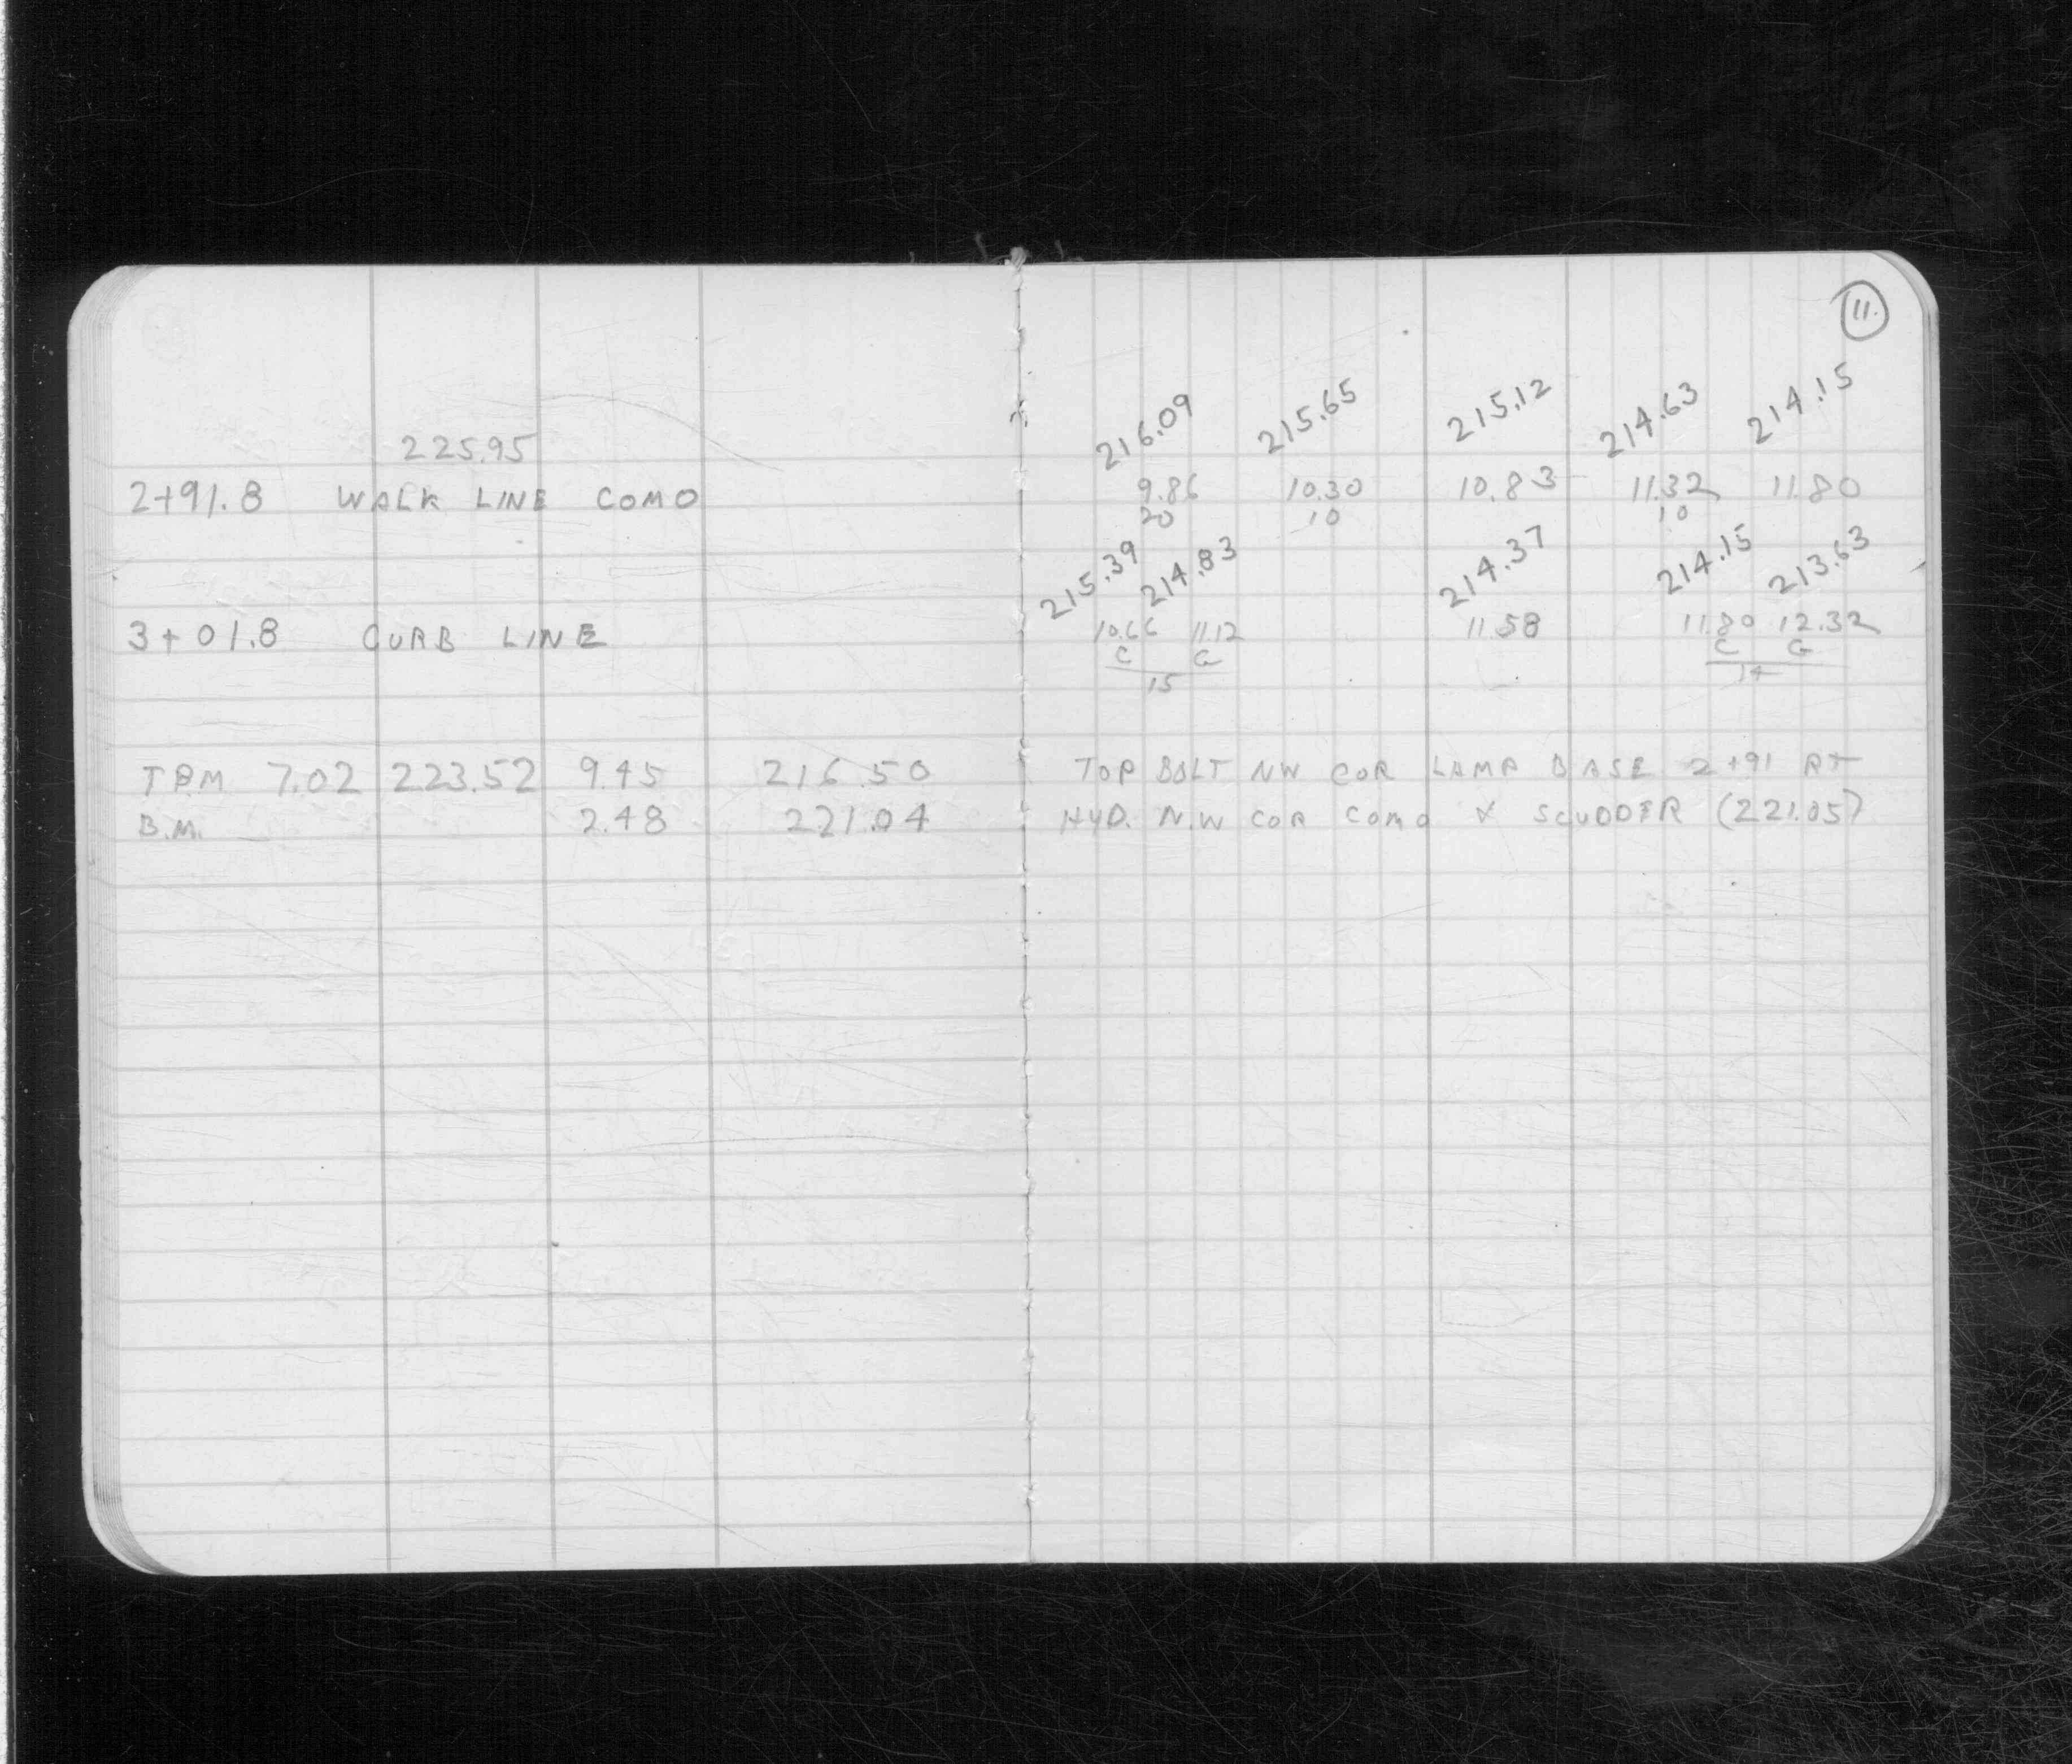 11.
216.09 215.65 215.12 214.63 214.15
225.95
2+91.8 WALK LINE COMO 9.86 10.30 10.83 11.32 11.80
20 10 10
215.39 214.83 214.37 214.15 213.63
3+01.8 CURB LINE 10.66 11.12 11.58 11.80 12.32
C G C G
15 14
TBM 7.02 223.52 9.45 216.50 TOP BOLT NW COR LAMP BASE 2+91 RT
B.M. 2.48 221.04 HYD. N.W COR COMO & SCUDDER (221.05)